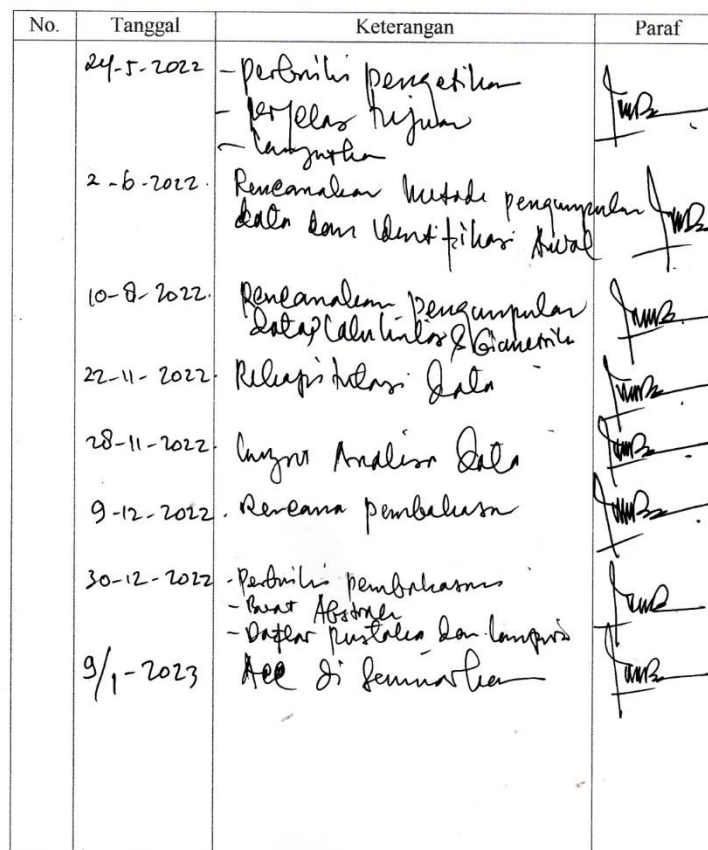 No. Tanggal Keterangan Paraf
24-5-2022 - Perbaiki pengetikan
- perjelas tujuan
- Lanjutkan
2-6-2022. Rencanakan Metode pengumpulan
data dan identifikasi Awal
10-8-2022. Rencanakan pengumpulan
data &
22-11-2022. Rekapitulasi Data
28-11-2022. Lanjut Analisa Data
9-12-2022. Rencana pembahasan
30-12-2022 - Perbaiki pembahasan
- Buat Abstrak
- Daftar pustaka dan lampiran
9/1-2023 Acc di seminarkan